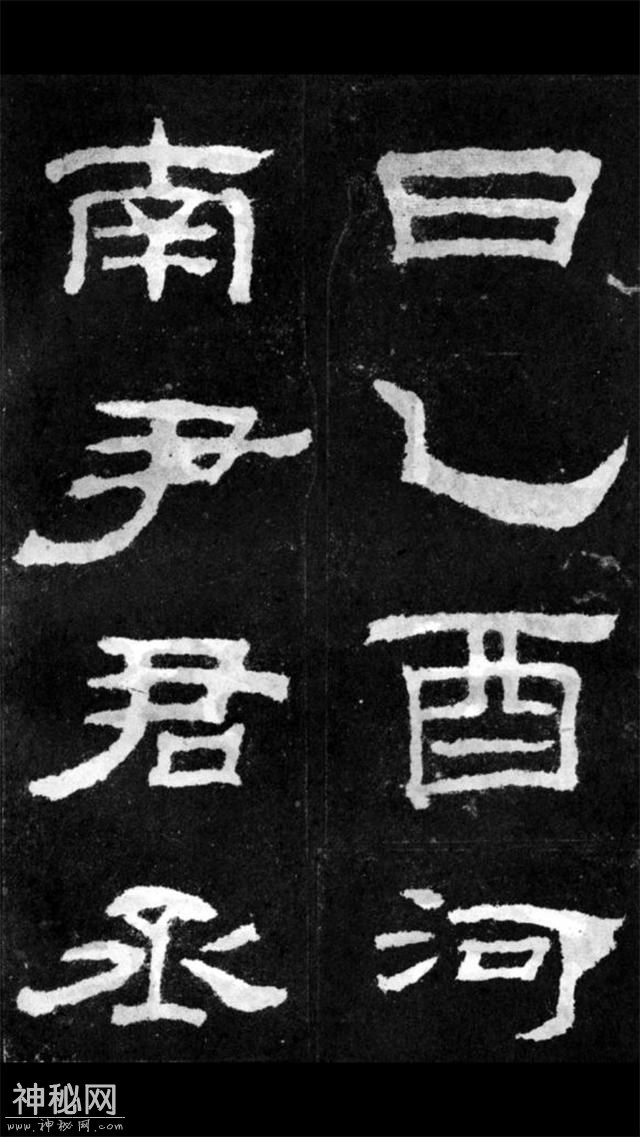 日乙酉河
南尹君丞
神秘网
www.神秘网.com